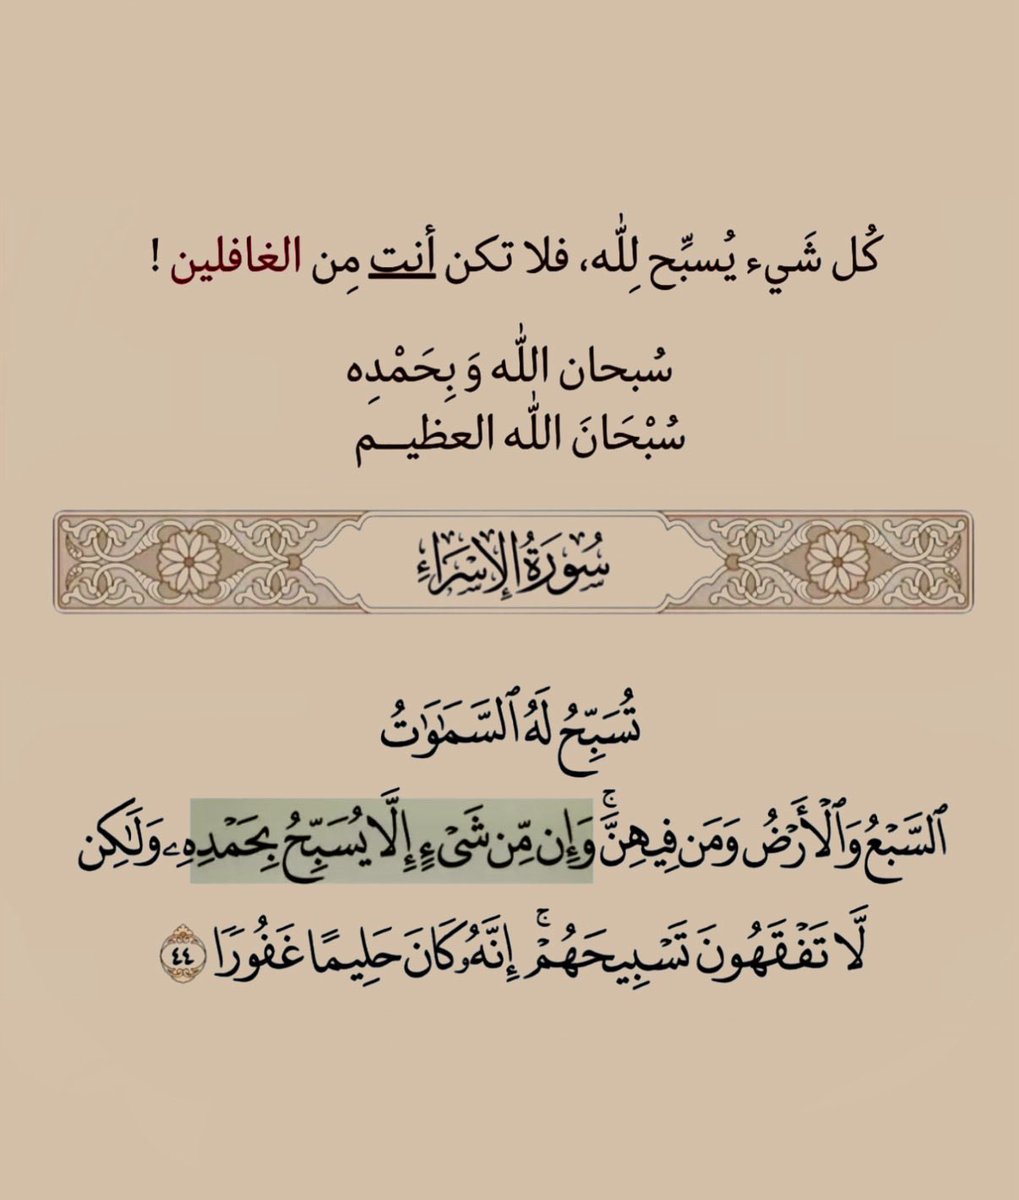 كُل شَيء يُسبِّح لِلّٰه، فلا تكن أنت مِن الغافلين !
سُبحان اللّٰه وَ بِحَمْدِه
سُبْحَانَ اللّٰه العظيـــم
سُورَةُ الإِسْرَاءِ
تُسَبِّحُ لَهُ ٱلسَّمَٰوَٰتُ
ٱلسَّبْعُ وَٱلْأَرْضُ وَمَن فِيهِنَّۚ وَإِن مِّن شَىْءٍ إِلَّا يُسَبِّحُ بِحَمْدِهِۦ وَلَٰكِن
لَّا تَفْقَهُونَ تَسْبِيحَهُمْۚ إِنَّهُۥ كَانَ حَلِيمًا غَفُورًا ٤٤